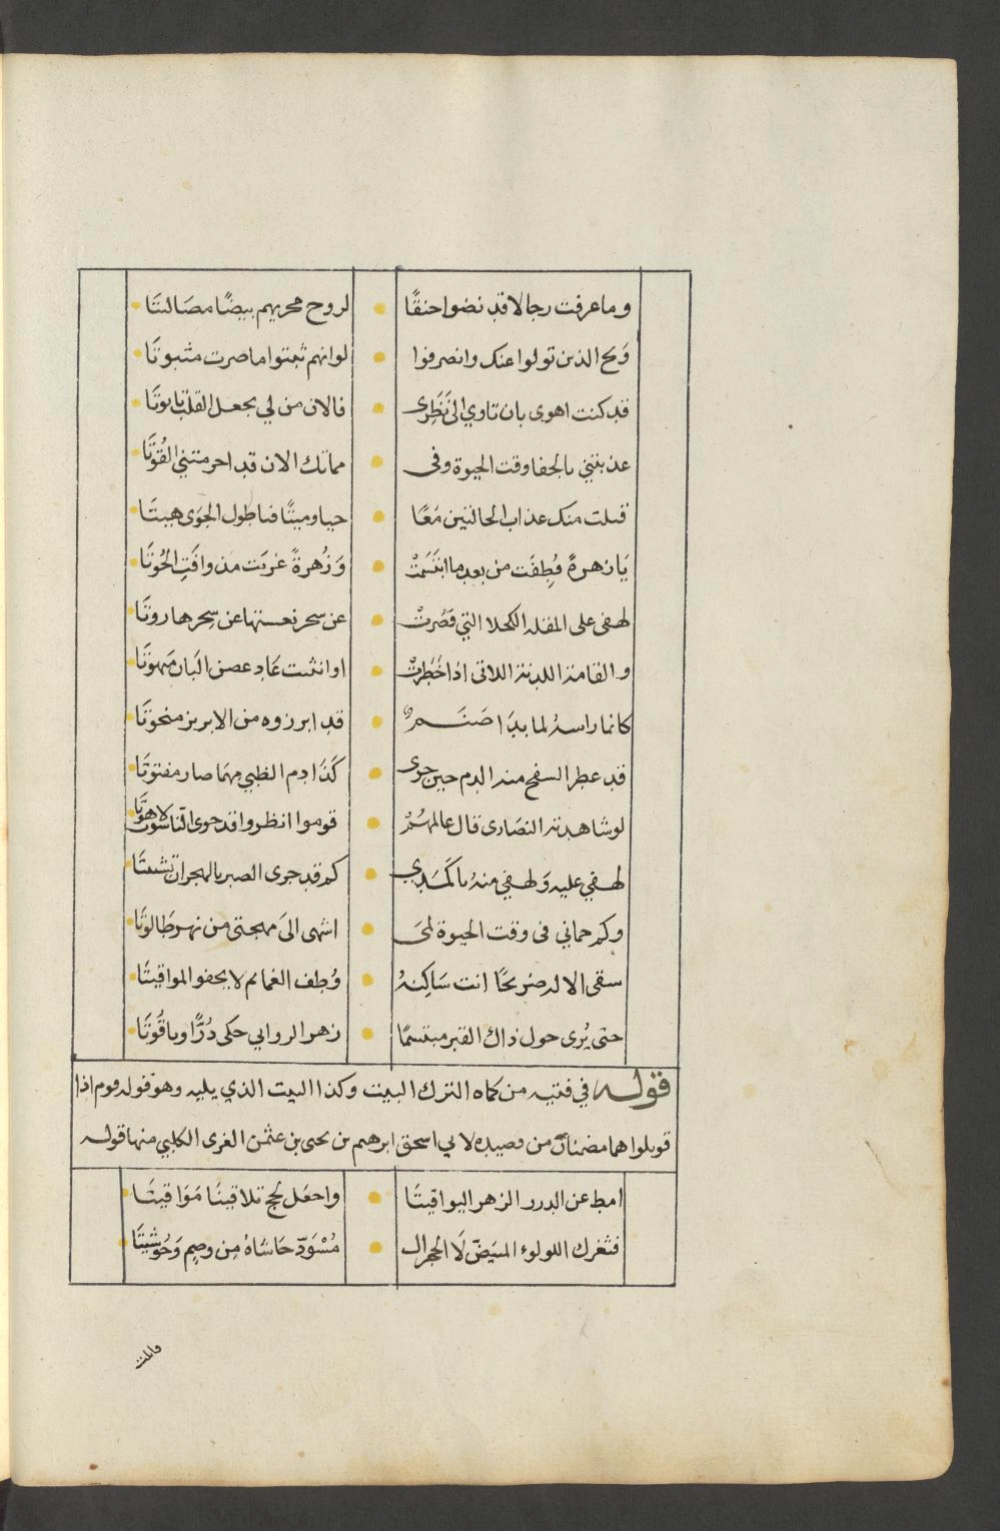 وما عرفت رجالا قد نضوا حنقًا لروح محريهم بيضًا مصَالتتَا
وَيح الذين تولوا عنك وانصرفوا لوانهم ثبتوا ما صرت مثبوتَا
قد كنت اهوى بان تاوي الىٰ نَظِرِى فالان من لي بجعل القلب تابوتَا
عذبتني بالجفا وقت الحيوة وفى مماتك الان قد احرمتني القُوتَا
قبلت منك عذاب الحالتين مَعًا حيا وميتًا فيا طول الجوَى هيتَا
يَا زهرةً قُطِفَت من بعد ما ابتَسَمَتْ وَزُهرةً غربَت مذ وافَتِ الحُوتَا
لهفى على المقلة الكحلا التي قصُرتْ عن سحر نعستها عن سِحر هاروتَا
والقامة اللدنة اللاتى اذا خَطَرتْ او انثنت عَاد غصن البان مبهوتَا
كانما راسهُ لما بدَا صَنَم قد ابرزوه من الابريز منحوتَا
قد عطر السفح منه الدم حين جرى كَذَا دم الظبي مهمَا صار مفتوتَا
لو شاهدته النصَارى قال عالمهُمْ قوموا انظروا قد حوى النّاسُوت لاهوتَا
لهفي عليه وَلهفي منهُ يا كَمَدِي كم قد جرى الصبر بالهجران تشتتَا
وكم حماني فى وقت الحيوة لمىَ اشهى الىَ مهجتى من نهر طَالوتَا
سقى الاله ضريحًا انت سَاكِنهُ وُطف الغمايم لا يحفو المواقيتَا
حتى يُرى حول ذاك القبر مبتسمًا زهر الروابي حكى دُرًّا وياقُوتَا
قوله في فتية من كماه الترك البيت وكذا البيت الذي يليه وهو قوله قوم اذا
قوبلوا هما مضمنان من قصيده لابي اسحق ابرهيم بن يحيى بن عثمن الغزى الكلبي منها قوله
امط عن الدرر الزهر اليواقيتَا واجعَل لحج تلاقينَا مَوَاقيتَا
فثغرك اللولوء المبيَضّ لَا الحجر ال مُسْوَدّ حَاشَاهُ مِن وصِم وَحُوشيتَا